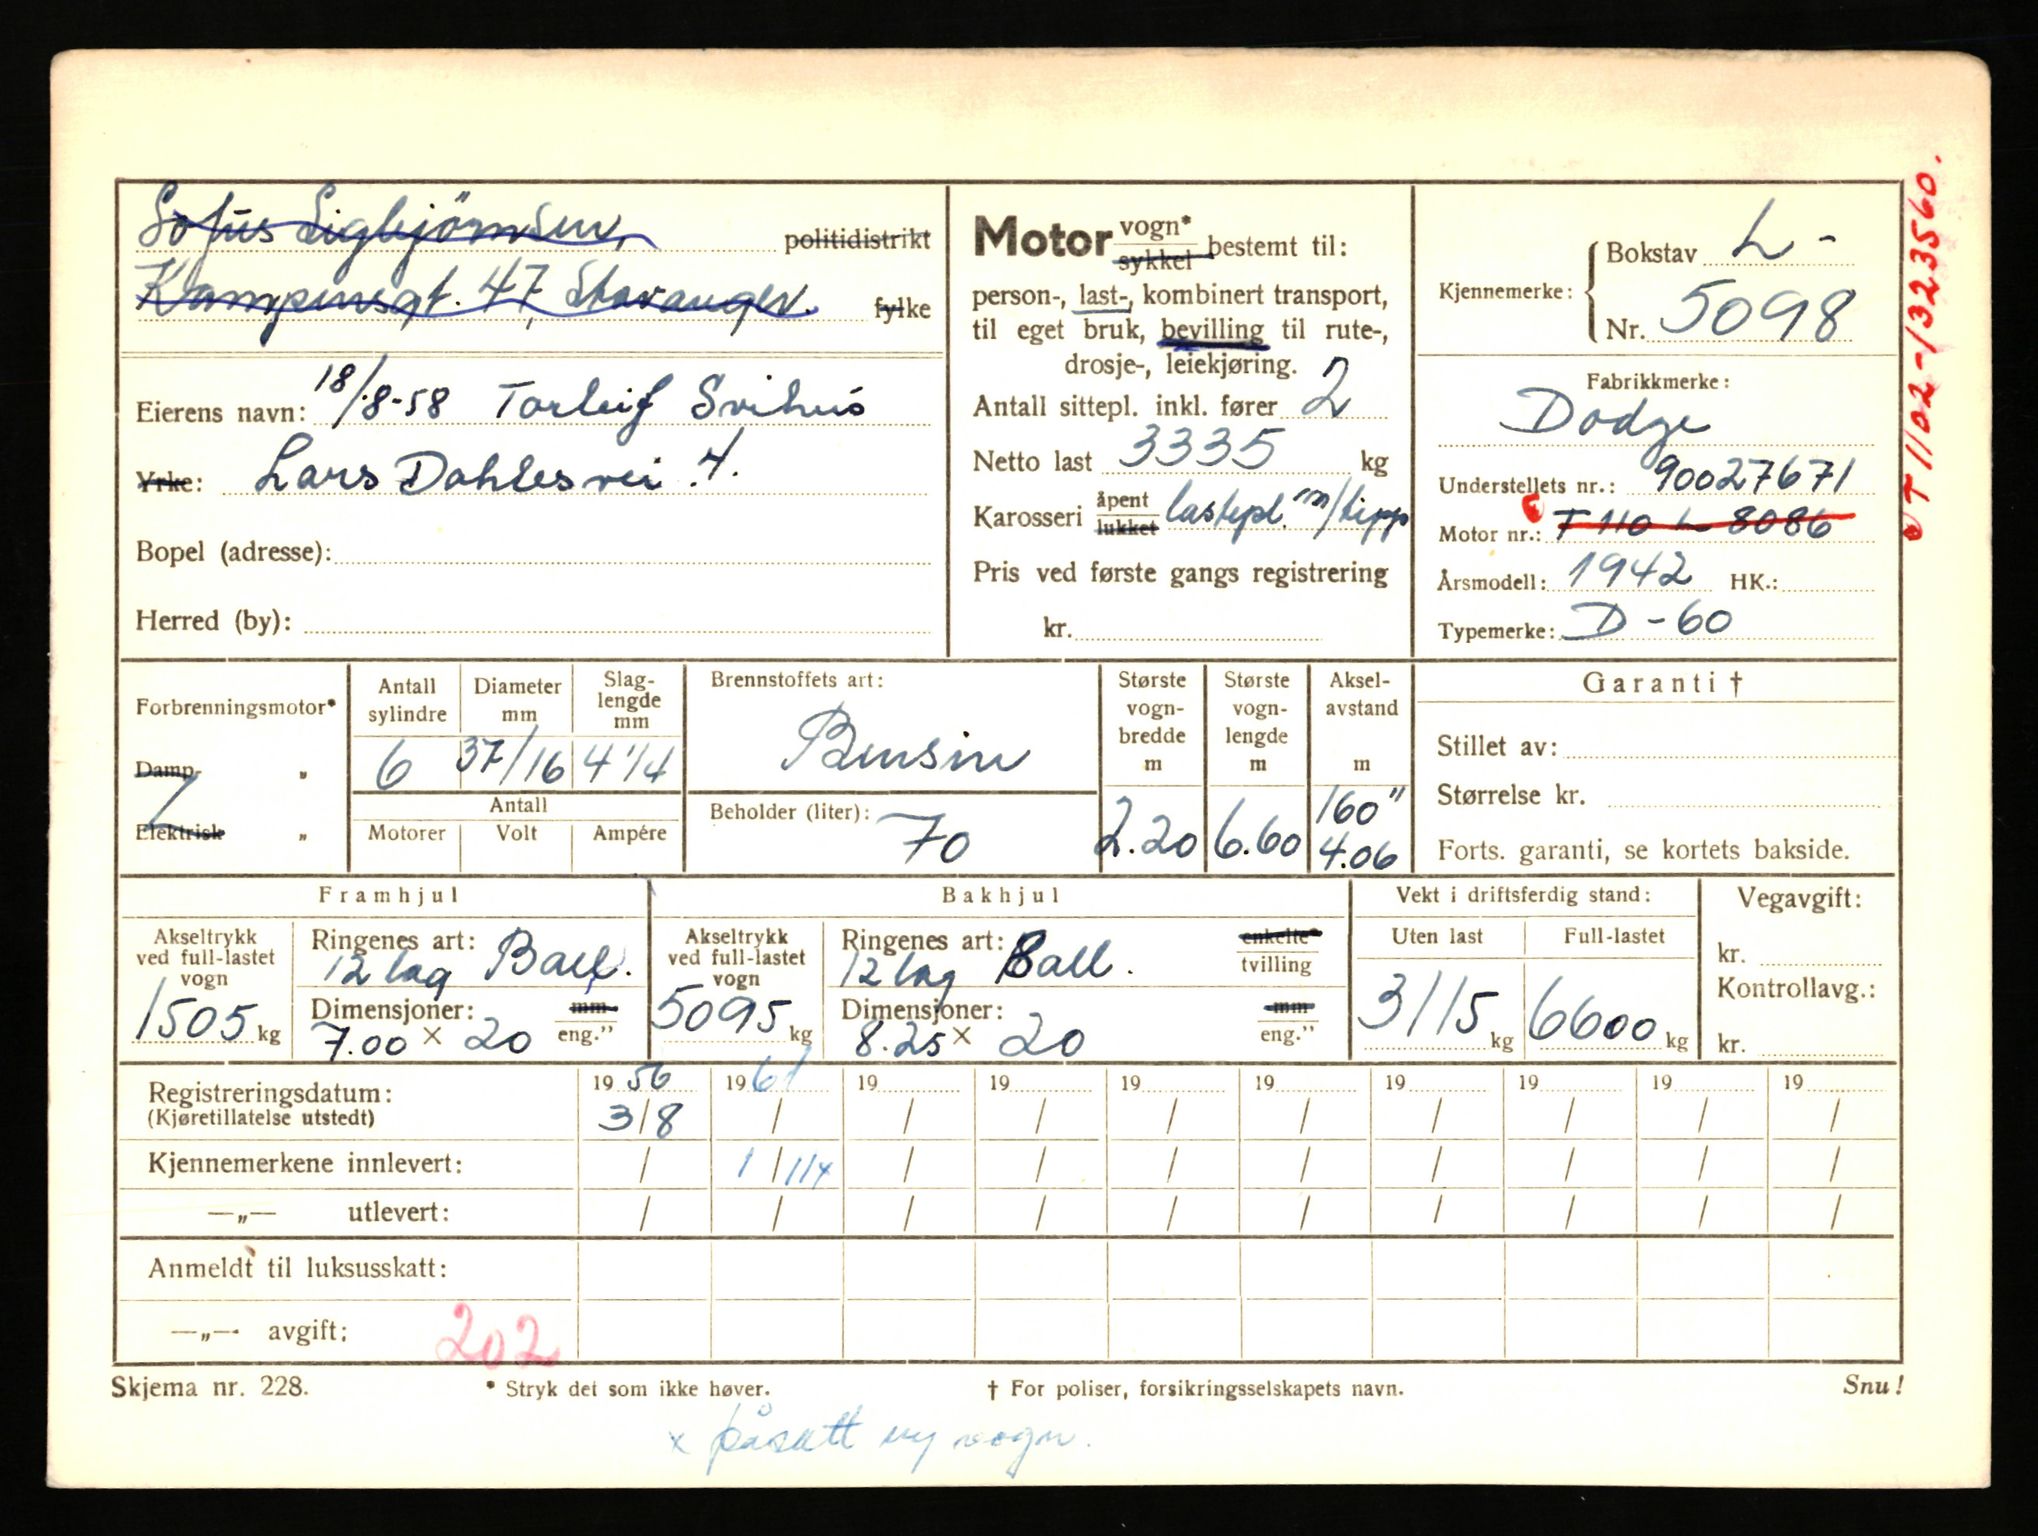 Sofus Sigbjörnsen, politidistrikt
Kampensgt. 47, Stavanger. fylke
Eierens navn: 18/8-58 Torleif Svihus
Yrke: Lars Dahlesvei 4.
Bopel (adresse):
Herred (by):
Motor vogn* sykkel bestemt til:
person-, last-, kombinert transport,
til eget bruk, bevilling til rute-,
drosje-, leiekjøring.
Antall sittepl. inkl. fører 2
Netto last 3335 kg
Karosseri åpent lukket lastepl. m/tipp
Pris ved første gangs registrering
kr.
Kjennemerke: Bokstav L -
Nr. 5098
Fabrikkmerke:
Dodge
Understellets nr.: 90027671
Motor nr.: T 110 L 8086
Årsmodell: 1942 HK.:
Typemerke: D - 60
T 1102-1323560.
Forbrenningsmotor*
Damp- „
Elektrisk „
Antall sylindre 6
Diameter mm 37/16
Slaglengde mm 4 1/4
Antall
Motorer Volt Ampére
Brennstoffets art:
Bensin
Beholder (liter):
70
Største vognbredde m 2.20
Største vognlengde m 6.60
Akselavstand m 160" 4.06
Garanti †
Stillet av:
Størrelse kr.
Forts. garanti, se kortets bakside.
Framhjul
Akseltrykk ved full-lastet vogn 1505 kg
Ringenes art: 12 lag Ball.
Dimensjoner: mm
7.00 x 20 eng.”
Bakhjul
Akseltrykk ved full-lastet vogn 5095 kg
Ringenes art: 12 lag Ball. enkelte* tvilling
Dimensjoner: mm
8.25 x 20 eng.”
Vekt i driftsferdig stand:
Uten last Full-lastet
3115 kg 6600 kg
Vegavgift:
kr.
Kontrollavg.:
kr.
Registreringsdatum: 19 56 19 61 19 19 19 19 19 19 19 19
(Kjøretillatelse utstedt) 3/8 / / / / / / / / /
Kjennemerkene innlevert: / 1/11x / / / / / / / /
—„— utlevert: / / / / / / / / / /
Anmeldt til luksusskatt:
—„— avgift: 202
Skjema nr. 228. * Stryk det som ikke høver. † For poliser, forsikringsselskapets navn. Snu!
x påsatt ny vogn.